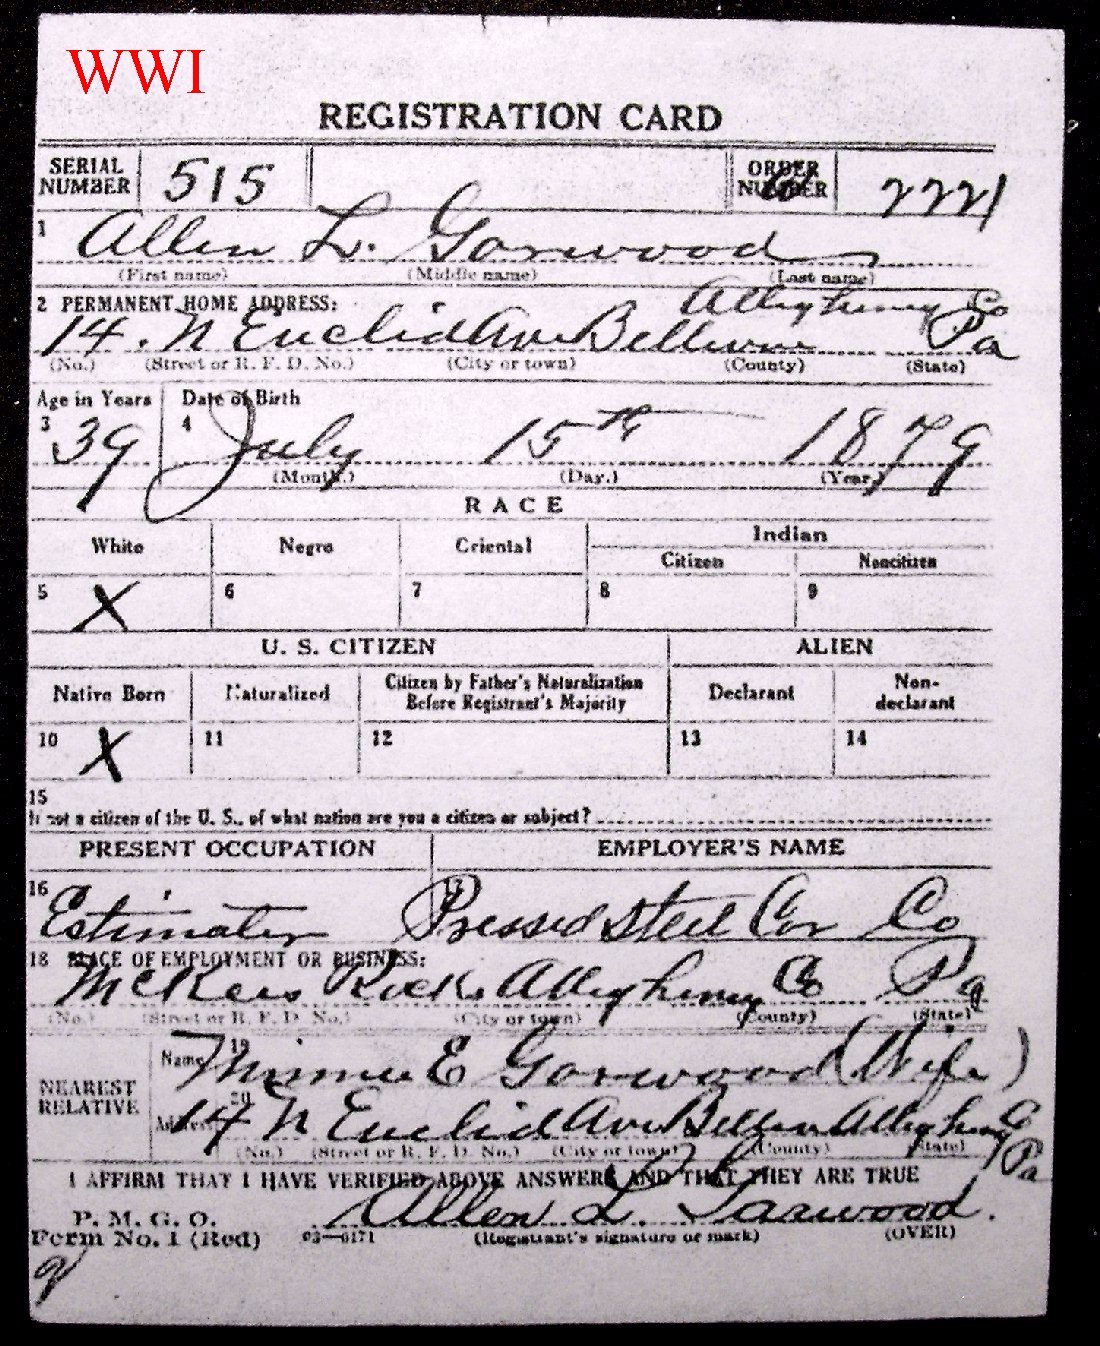 WWI
REGISTRATION CARD
SERIAL NUMBER 515 ORDER NUMBER 2221
1 Allen L. Garwood
(First name) (Middle name) (Last name)
2 PERMANENT HOME ADDRESS: Allegheny Co
14. N Euclid Ave Bellevue Pa
(No.) (Street or R. F. D. No.) (City or town) (County) (State)
Age in Years Date of Birth
3 39 4 July 15th 1879
(Month.) (Day.) (Year.)
RACE
White Negro Oriental Indian
Citizen Noncitizen
5 X 6 7 8 9
U. S. CITIZEN ALIEN
Native Born Naturalized Citizen by Father's Naturalization Before Registrant's Majority Declarant Non-declarant
10 X 11 12 13 14
15
If not a citizen of the U. S., of what nation are you a citizen or subject?
PRESENT OCCUPATION EMPLOYER'S NAME
16 Estimator 17 Pressed Steel Car Co
18 PLACE OF EMPLOYMENT OR BUSINESS:
McKees Rocks Allegheny Co Pa
(No.) (Street or R. F. D. No.) (City or town) (County) (State)
NEAREST RELATIVE Name 19 Minnie E Garwood (Wife)
Address 20 14 N Euclid Ave Bellevue Allegheny Co Pa
(No.) (Street or R. F. D. No.) (City or town) (County) (State)
I AFFIRM THAT I HAVE VERIFIED ABOVE ANSWERS AND THAT THEY ARE TRUE
P. M. G. O. Allen L. Garwood.
Form No. 1 (Red) 03—6171 (Registrant's signature or mark) (OVER)